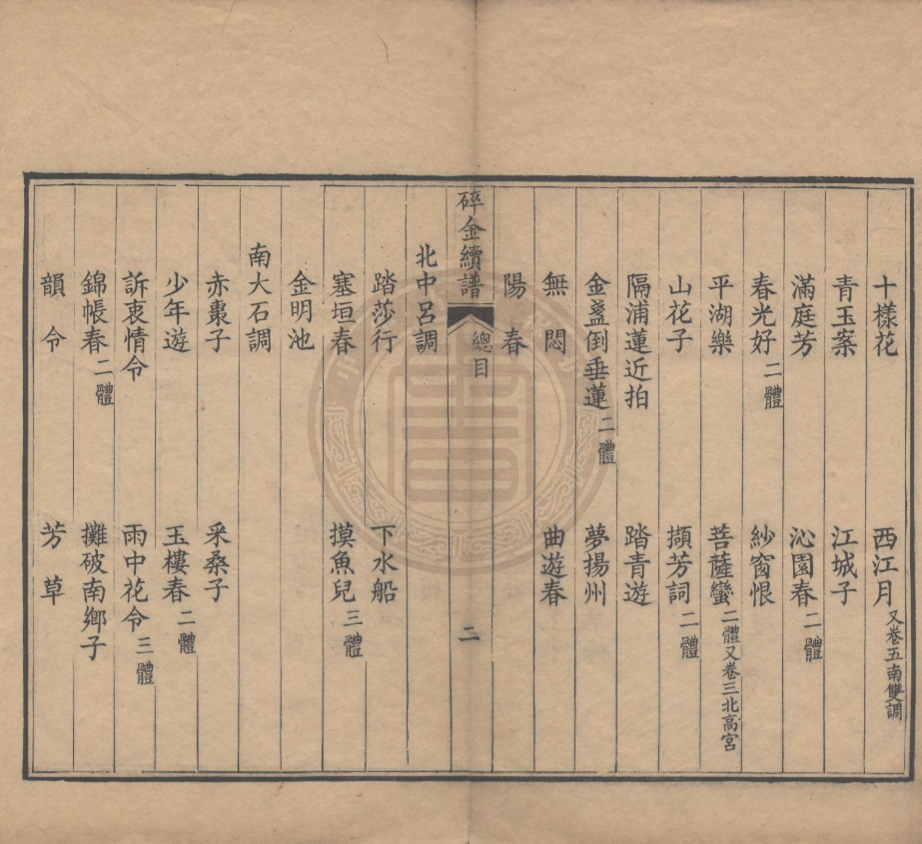 十樣花 西江月 又卷五南雙調
青玉案 江城子
滿庭芳 沁園春 二體
春光好 二體 紗窗恨
平湖樂 菩薩蠻 二體又卷三北高宮
山花子 擷芳詞 二體
隔浦蓮近拍 踏青遊
金盞倒垂蓮 二體 夢揚州
無悶 曲遊春
陽春
碎金續譜 總目 二
北中呂調
踏莎行 下水船
塞垣春 摸魚兒 三體
金明池
南大石調
赤棗子 采桑子
少年遊 玉樓春 二體
訴衷情令 雨中花令 三體
錦帳春 二體 攤破南鄉子
韻令 芳草